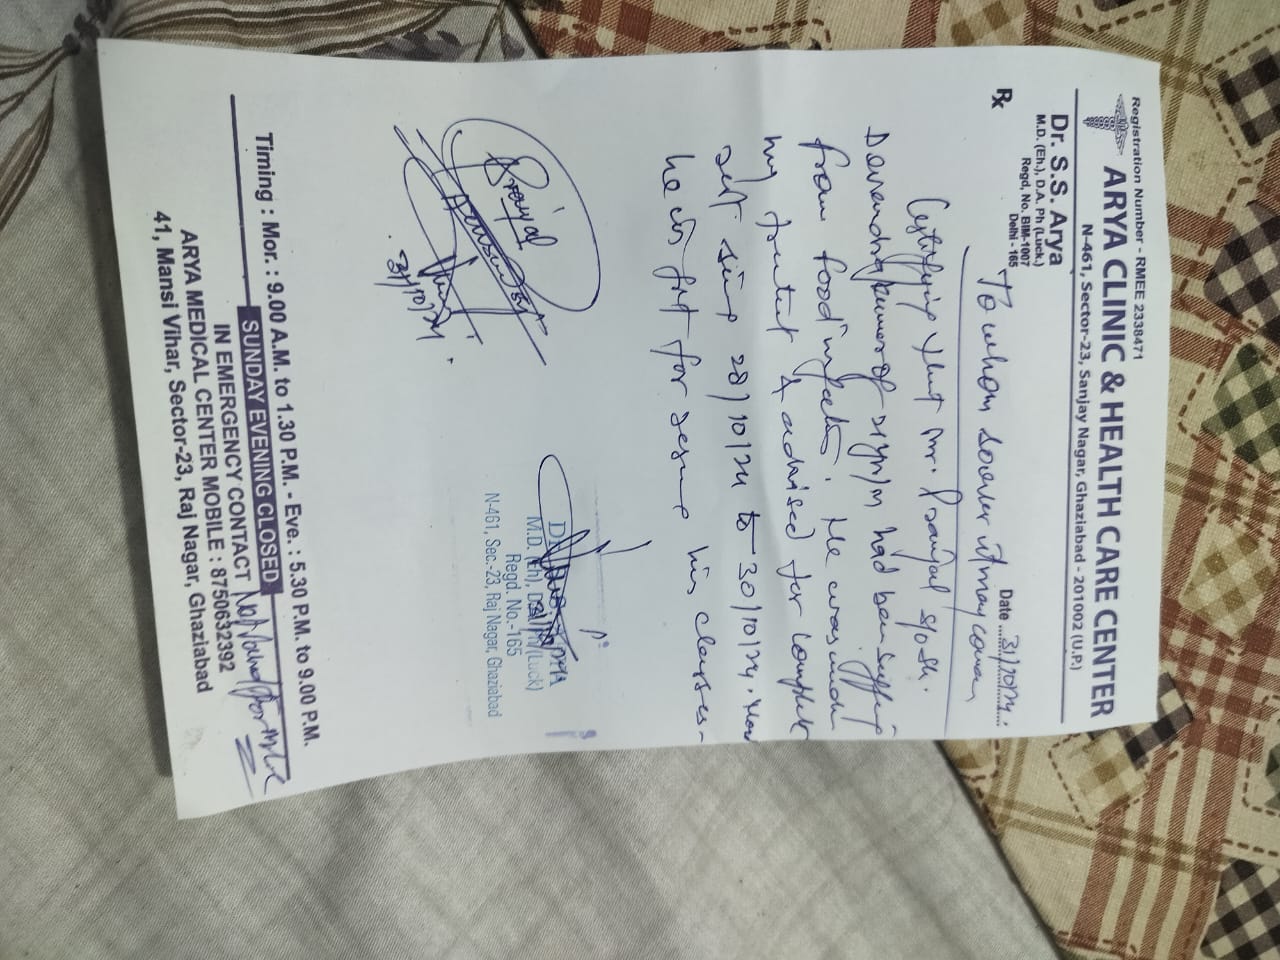 Registration Number - RMEE 2338471
ARYA CLINIC & HEALTH CARE CENTER
N-461, Sector-23, Sanjay Nagar, Ghaziabad - 201002 (U.P.)
Dr. S.S. Arya
M.D. (Eh.), D.A. Ph (Luck.)
Regd, No. BIM-1007
Delhi - 165
Date 31/10/24.
Rx
To whom soever it may concern
Certifying that Mr. Pranjal S/o Sh.
Devendra Kumar of 21yr/M had been suffering
from food infection. He was under
my treatment & advised for complete
rest since 28/10/24 to 30/10/24. Now
he is fit for resume his classes.
Pranjal
31/10/24.
M.D. (Eh), (Luck)
Regd. No.-165
N-461, Sec.-23 Raj Nagar, Ghaziabad
Timing : Mor. : 9.00 A.M. to 1.30 P.M. - Eve. : 5.30 P.M. to 9.00 P.M.
SUNDAY EVENING CLOSED
Not Valid For MLC
IN EMERGENCY CONTACT
ARYA MEDICAL CENTER MOBILE : 8750632392
41, Mansi Vihar, Sector-23, Raj Nagar, Ghaziabad